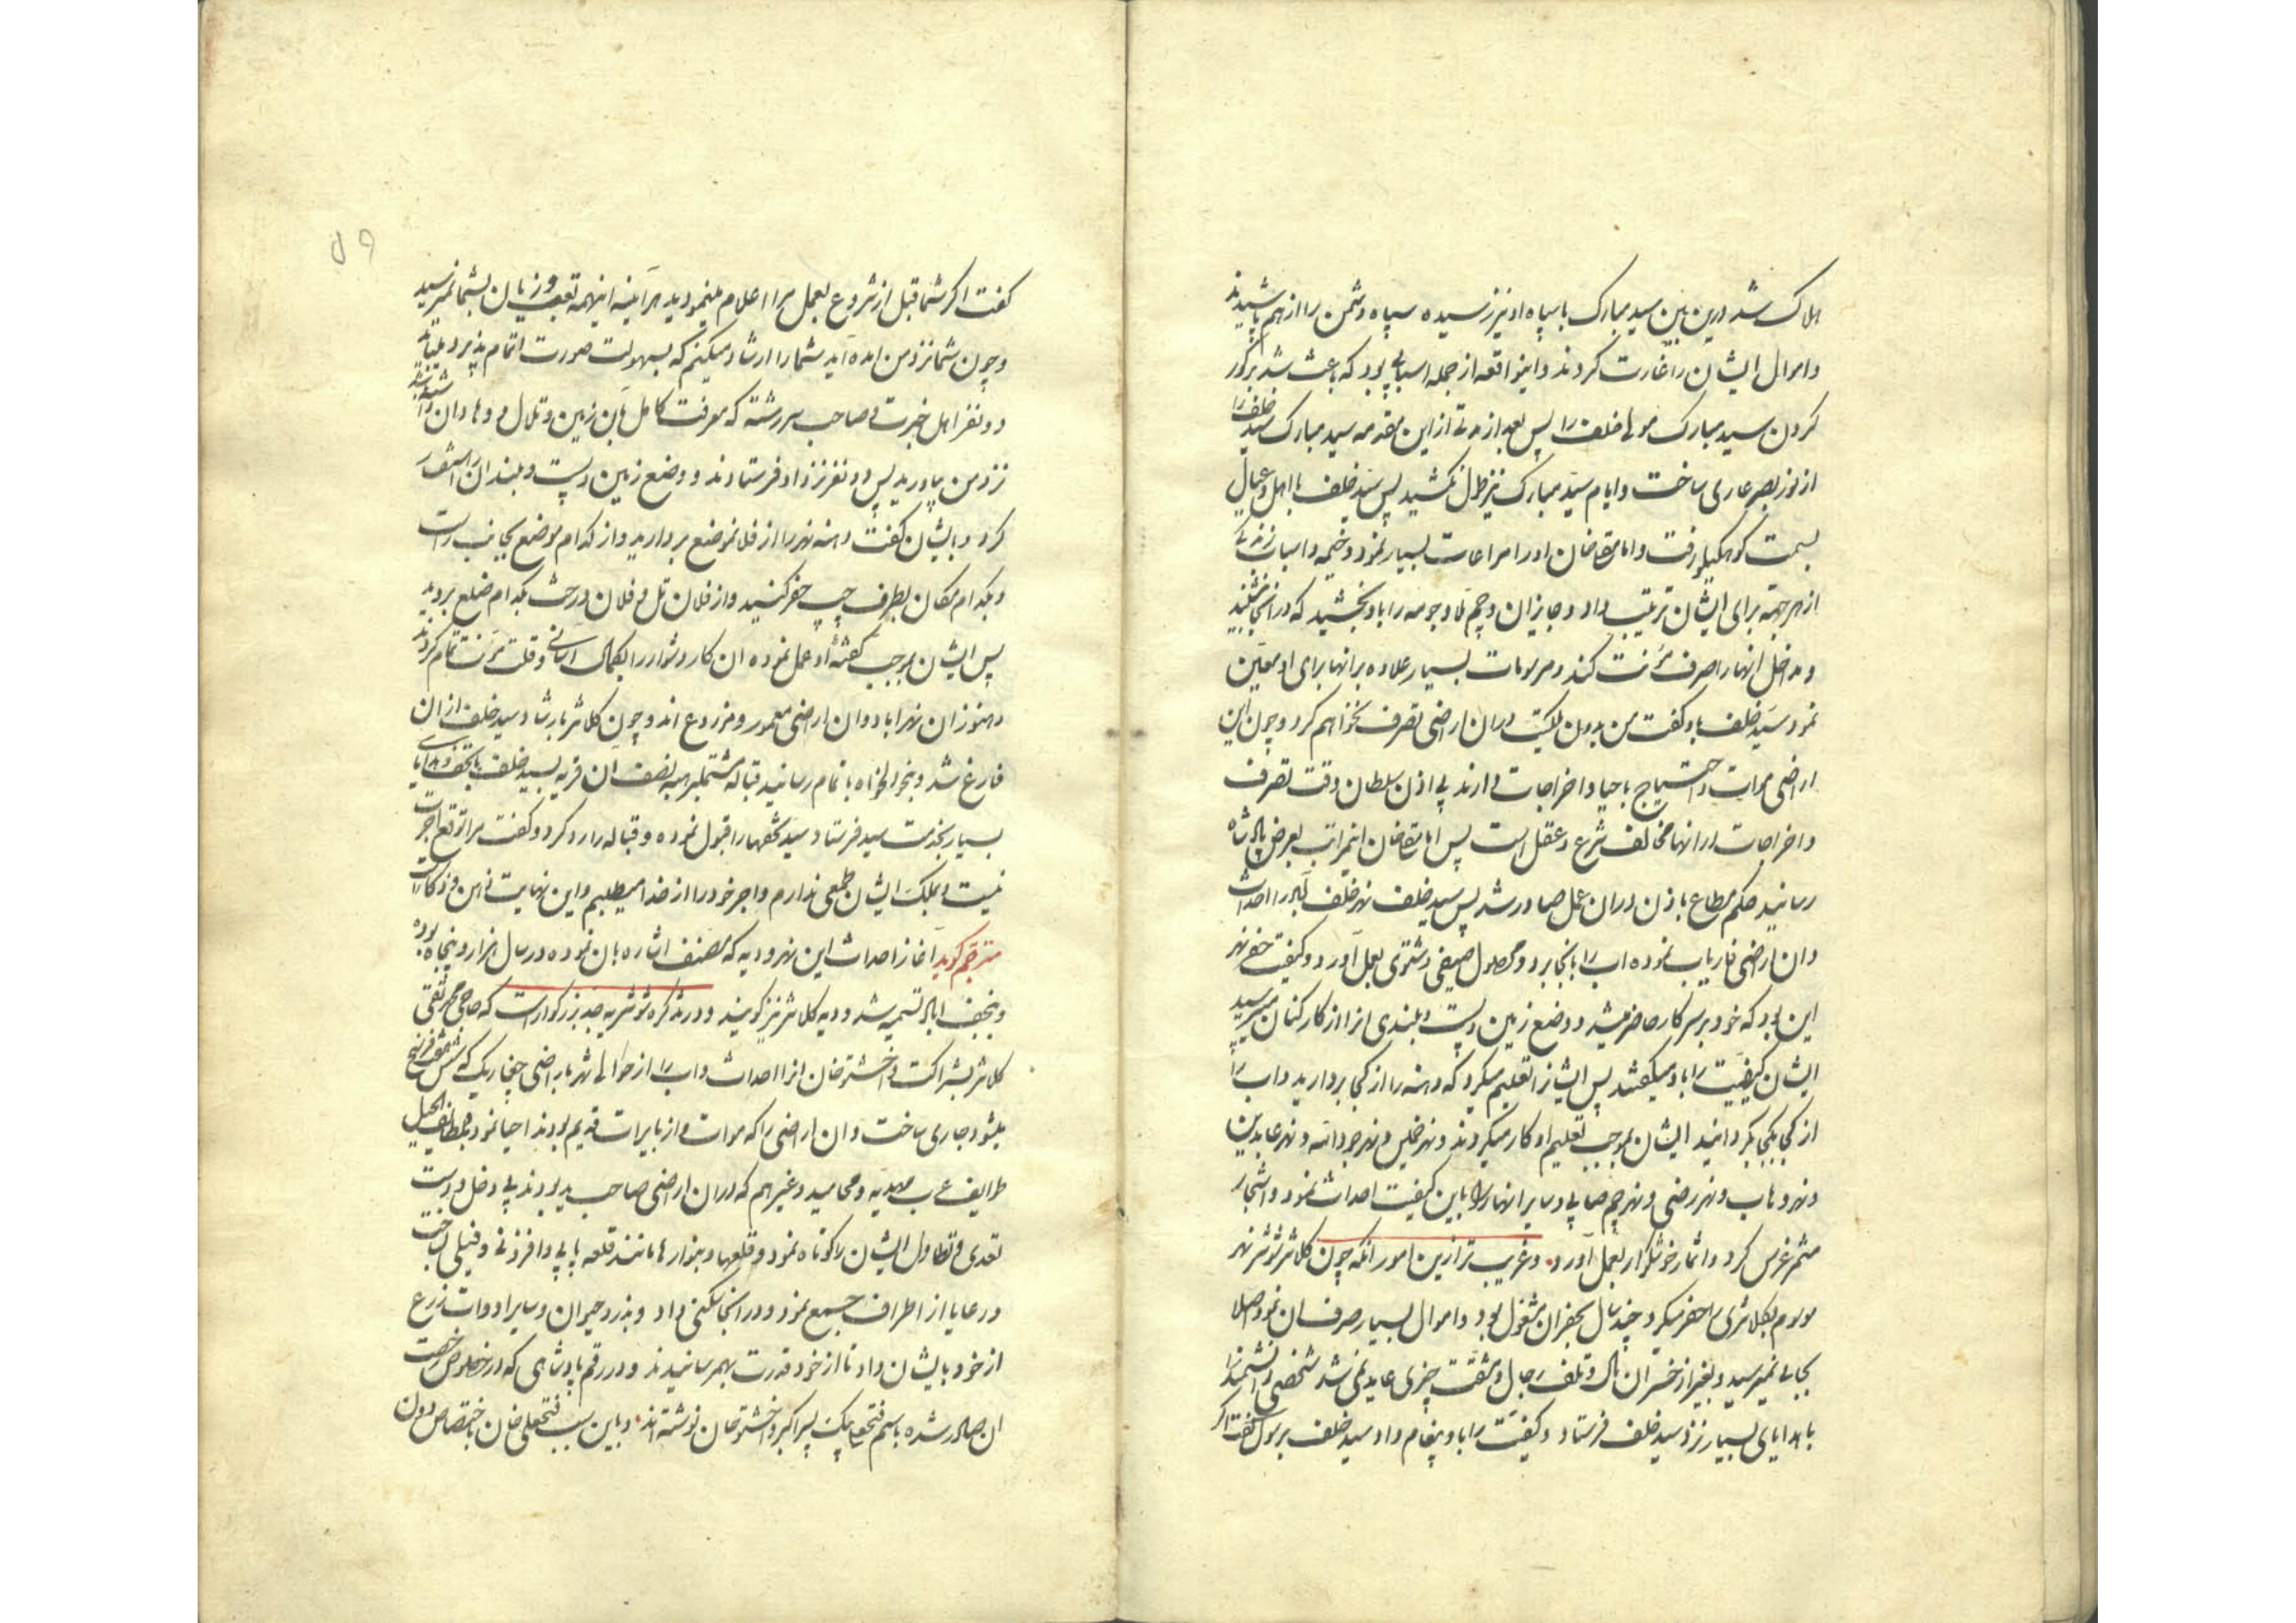 هلاک شد درین بین سید مبارک با سپاه او نیز رسیده سپاه دشمن را از هم پاشیدند
و اموال ایشان را غارت کردند و اینواقعه از جمله اسبابی بود که باعث شد بر کور
کردن سید مبارک مولی خلف را پس بعد از مدتی از این مقدمه سید مبارک سید خلف را
از نور بصر عاری ساخت و ایام سید مبارک نیز طول نکشید پس سید خلف با اهل و عیال
بسمت کوهکیلو رفت و امامقلیخان او را مراعات بسیار نمود و خیمه و اسباب
از هر جهته برای ایشان ترتیب داد و جایزان و و جومه را باو بخشید که در آنجا
و مداخل انها را صرف مؤنت کند و مرسومات بسیار علاوه بر انها برای او معین
نمود سید خلف باو گفت من بدون ملکیت در ان اراضی تصرف نخواهم کرد و چون این
اراضی موات و احتیاج باحیا و اخراجات دارند بی اذن سلطان وقت تصرف
و اخراجات در انها مخالف شرع و عقل است پس امامقلیخان اینمراتب بعرض پادشاه
رسانید حکم مطاع باذن در ان عمل صادر شد پس سید خلف نهر خلف آباد را احداث
و ان اراضی فاریاب نموده اب را بانجا برد و محصول صیفی و شتوی بعمل آورد و کیفیت حفر نهر
این بود که خود بر سر کار حاضر میشد و وضع زمین و پست و بلندی انرا از کارکنان میپرسید
ایشان کیفیت را باو میگفتند پس ایشانرا تعلیم میکرد که دهنه را از کجا بردارید و اب را
از کجا بکجا بگردانید ایشان بموجب تعلیم او کار میکردند و نهر و نهر و نهر عابدین
و نهر وهاب و نهر رضی و نهر و سایر انهار را باین کیفیت احداث نمود و اشجار
مثمر غرس کرد و اثمار خوشگوار بعمل آورد و غریب تر ازین امور انکه چون کلانتر شوشتر نهر
موسوم بکلانتری را حفر میکرد چند سال بحفر ان مشغول بود و اموال بسیار صرف ان نمود اصلا
بجائی نمیرسید و بغیر از خسران مال و تلف رجال و مشقت چیزی عاید نمی شد شخصی دانشمند را
با هدایای بسیار نزد سید خلف فرستاد و کیفیت را باو پیغام داد سید خلف برسول گفت اگر
گفت اگر شما قبل از شروع بعمل مرا اعلام مینمودید هر آینه اینهمه تعب و زیان بشما نمیرسید
و چون شما نزد من امده اید شما را ارشاد میکنم که بسهولت صورت اتمام پذیرد
دو نفر اهل خبرت و صاحب سررشته که معرفت کامل بان زمین و تلال و وهاد ان داشته باشند
نزد من بیاورید پس دو نفر نزد او فرستادند و وضع زمین و پست و بلند ان را استفسار
کرد و بایشان گفت دهنه نهر را از فلانموضع بردارید و از کدام موضع بجانب راست
و بکدام مکان بطرف چپ حفر کنید و از فلان تل و فلان درخت بکدام ضلع بروید
پس ایشان بموجب گفتهٔ او عمل نموده ان کار دشوار را بکمال اسانی و قلت مؤنت تمام کردند
و هنوز ان نهر اباد و ان اراضی معمور و مزروع اند و چون کلانتر بارشاد سید خلف از ان
فارغ شد و بنحو دلخواه باتمام رسانید قباله مشتمل بر هبه نصف ان قریه بسید خلف با تحف و هدایای
بسیار بخدمت سید فرستاد سید تحفها را قبول نموده و قباله را رد کرد و گفت مرا توقع اجرت
نیست و بملک ایشان طمعی ندارم و اجر خود را از خدا میطلبم و این نهایت ذهن و ذکاوت
مترجم گوید آغاز احداث این نهر و دیه که مصنف اشاره بان نموده در سال هزار و پنجاه بوده
و بنجف اباد تسمیه شد و دیه کلانتر نیز گویند و در تذکره شوشتریه جد بزرگوار است که حاجی محمد تقی
کلانتر بشراکت و اخشتو خان انرا احداث و اب را از حوالی شهر باراضی که شش هفت فرسخ
میشود جاری ساخت و ان اراضی را که موات و از بایرات قدیم بودند احیا نمود و بلطائف الحیل
طوایف عرب و غیرهم که در ان اراضی صاحب ید بودند بی دخل و دست
تعدی و تطاول ایشان را کوتاه نمود و قلعها و مانند قلعه و ساخت
و رعایا از اطراف جمیع نمود و در انجا سکنی داد و بذر و حیوان و سایر ادوات زرع
از خود بایشان داد تا از خود قدرت بهمرسانیدند و در رقم پادشاهی که در خصوص رخصت
ان صادر شده باسم فتحعلی بیک پسر اکبر و اخشتو خان نوشته اند و باین سبب فتحعلی خان باختصاص دون